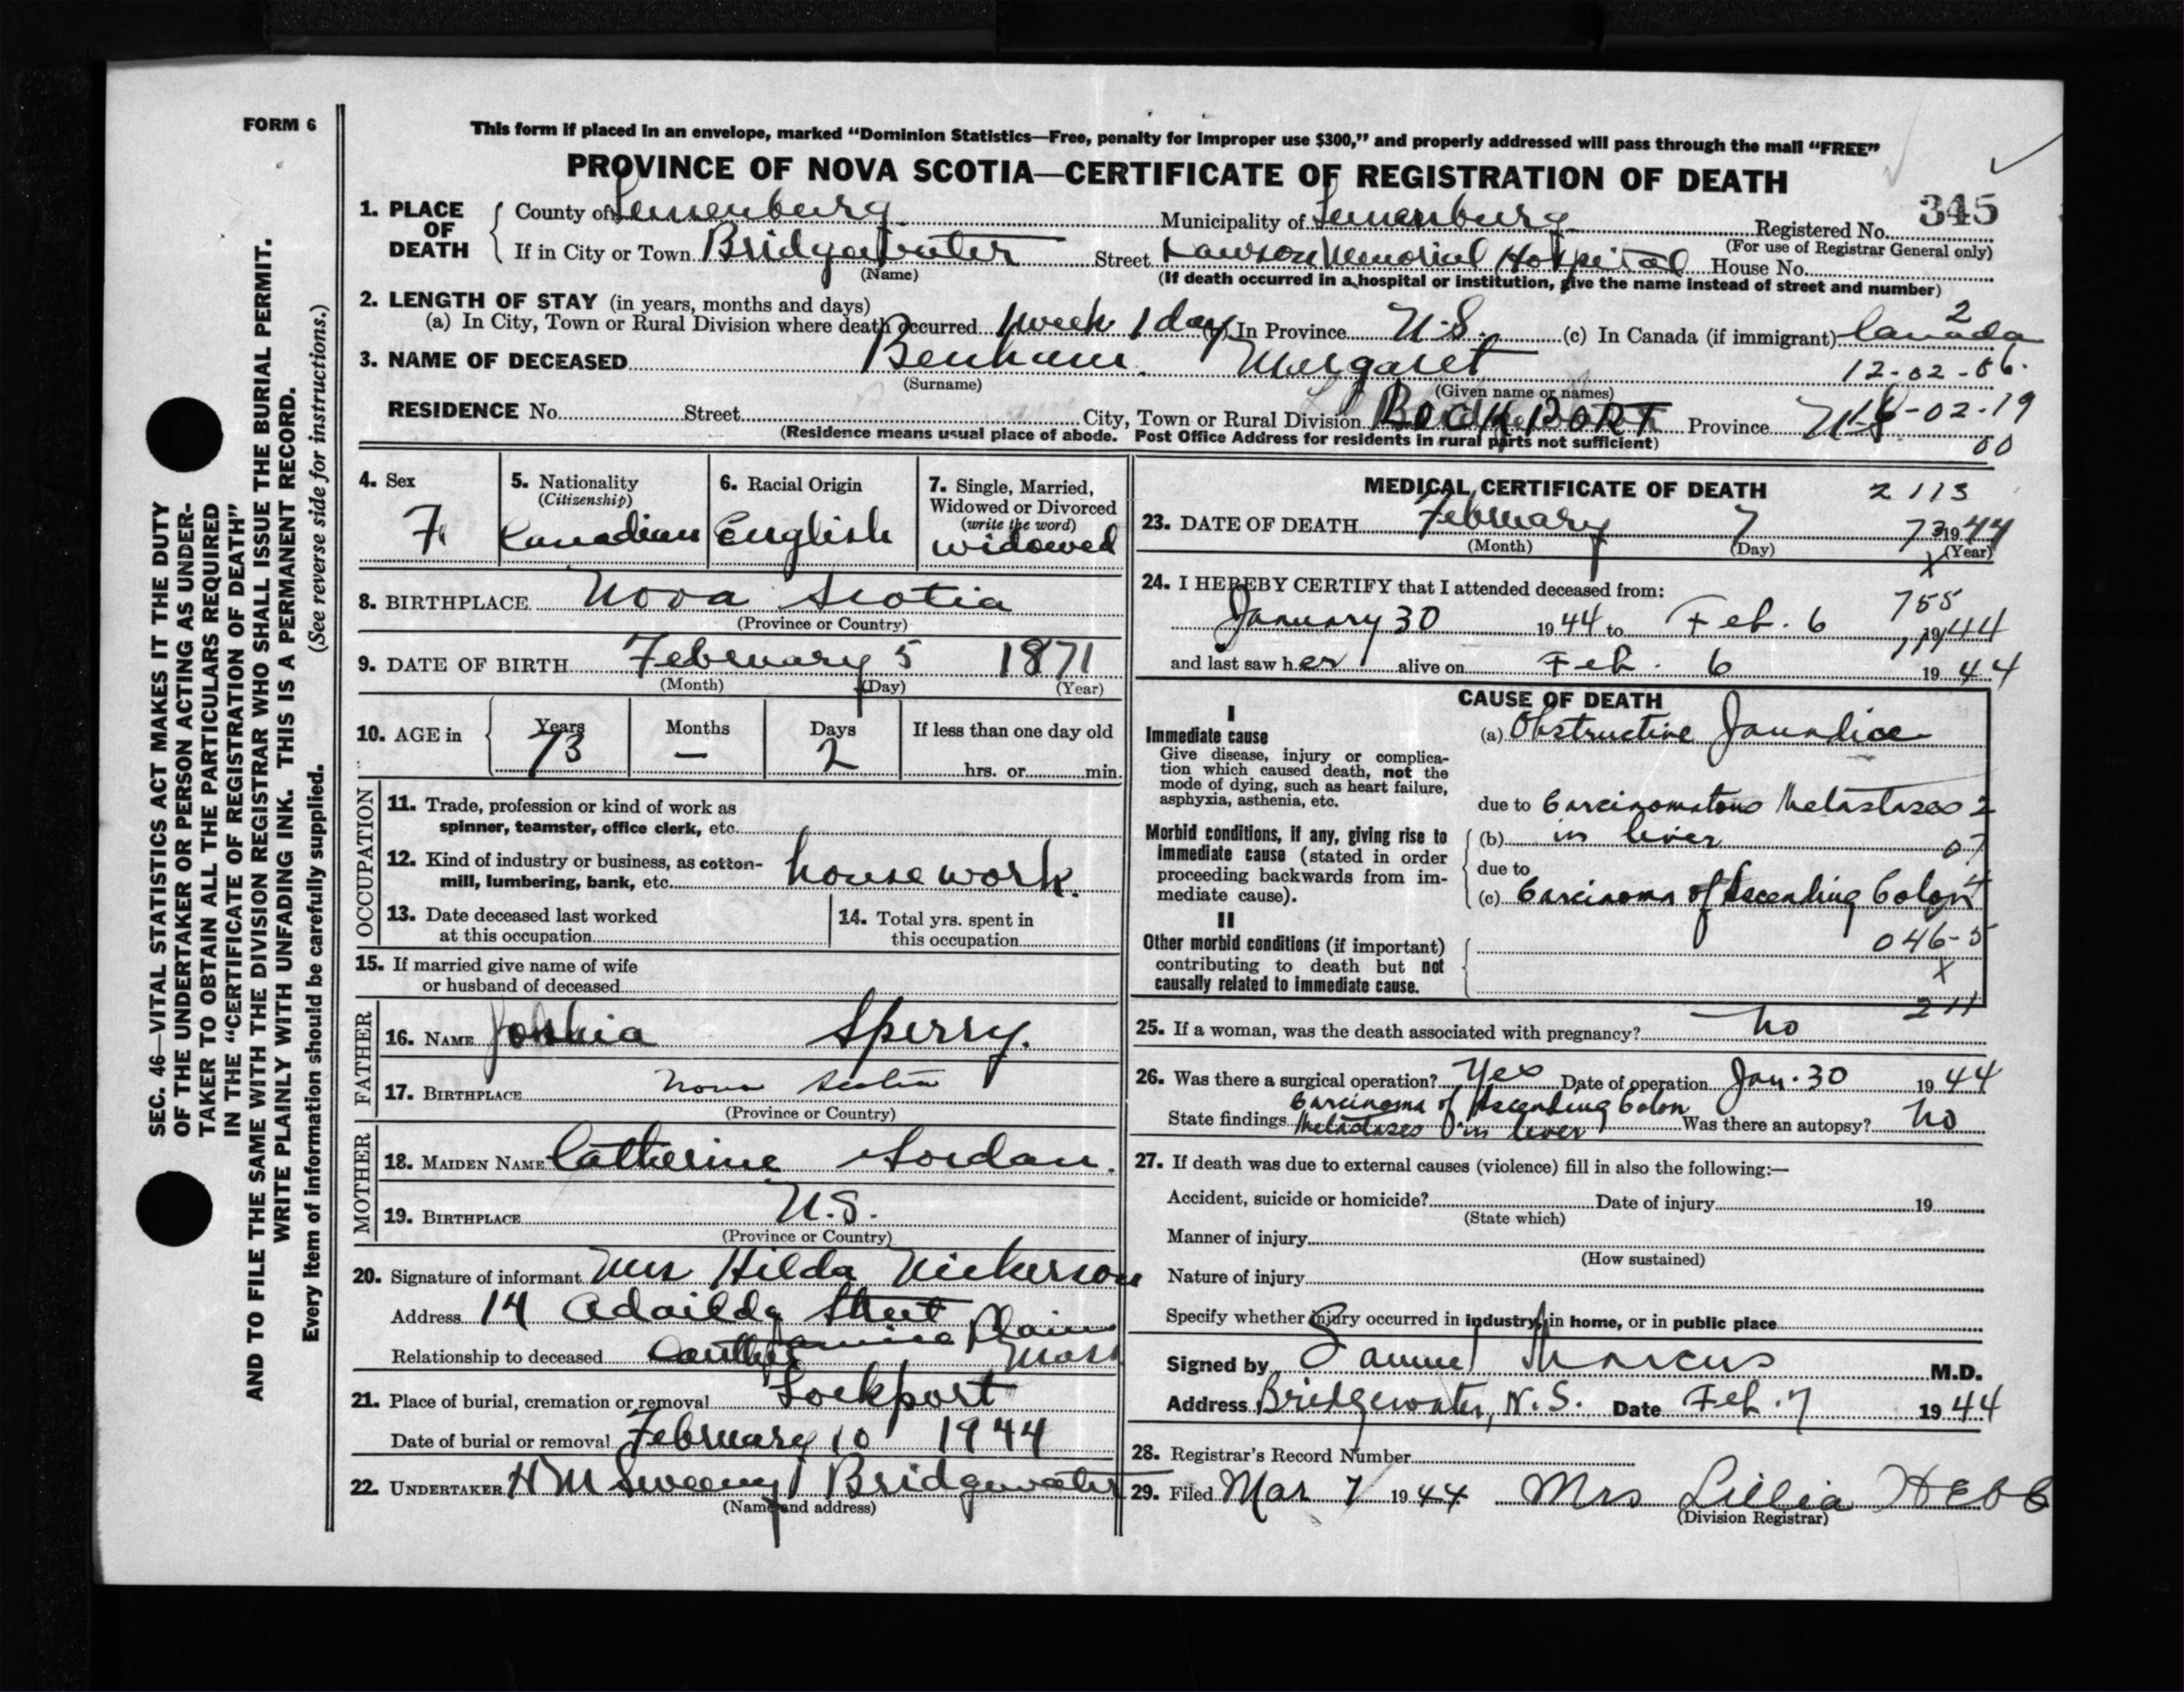 FORM 6
This form if placed in an envelope, marked “Dominion Statistics—Free, penalty for improper use $300,” and properly addressed will pass through the mail “FREE”
PROVINCE OF NOVA SCOTIA—CERTIFICATE OF REGISTRATION OF DEATH
345
1. PLACE OF DEATH
County of Lunenburg Municipality of Lunenburg Registered No.
(For use of Registrar General only)
If in City or Town Bridgewater Street Dawson Memorial Hospital House No.
(Name)
(If death occurred in a hospital or institution, give the name instead of street and number)
2. LENGTH OF STAY (in years, months and days)
(a) In City, Town or Rural Division where death occurred 1 week 1 day In Province N.S. (c) In Canada (if immigrant) Canada
2
3. NAME OF DECEASED Benham. Margaret
12-02-06.
(Surname) (Given name or names)
RESIDENCE No. Street City, Town or Rural Division Province N.S.
-02-19
00
(Residence means usual place of abode. Post Office Address for residents in rural parts not sufficient)
4. Sex
F.
5. Nationality
(Citizenship)
Canadian
6. Racial Origin
English
7. Single, Married, Widowed or Divorced
(write the word)
widowed
8. BIRTHPLACE Nova Scotia
(Province or Country)
9. DATE OF BIRTH February 5 1871
(Month) (Day) (Year)
10. AGE in
Years Months Days If less than one day old
73 — 2 hrs. or min.
OCCUPATION
11. Trade, profession or kind of work as
spinner, teamster, office clerk, etc.
12. Kind of industry or business, as cotton-
mill, lumbering, bank, etc. housework.
13. Date deceased last worked
at this occupation
14. Total yrs. spent in
this occupation
15. If married give name of wife
or husband of deceased
FATHER
16. NAME Joshia Sperry.
17. BIRTHPLACE Nova Scotia
(Province or Country)
MOTHER
18. MAIDEN NAME Catherine
19. BIRTHPLACE N.S.
(Province or Country)
20. Signature of informant Mrs Hilda Nickerson
Address 14 Street
Plain
Mass
Relationship to deceased
21. Place of burial, cremation or removal Lockport
Date of burial or removal February 10 1944
22. UNDERTAKER H M Sweeny Bridgewater
(Name and address)
MEDICAL CERTIFICATE OF DEATH
2113
23. DATE OF DEATH February 7 1944
73
(Month) (Day) (Year)
X
24. I HEREBY CERTIFY that I attended deceased from:
755
January 30 1944 to Feb. 6 1944
and last saw her alive on Feb. 6 1944
CAUSE OF DEATH
I
Immediate cause
Give disease, injury or complica-
tion which caused death, not the
mode of dying, such as heart failure,
asphyxia, asthenia, etc.
(a) Obstructive Jaundice
due to Carcinomatous Metastases
2
Morbid conditions, if any, giving rise to
immediate cause (stated in order
proceeding backwards from im-
mediate cause).
(b) in liver
07
due to
(c) Carcinoma of Ascending Colon
II
Other morbid conditions (if important)
contributing to death but not
causally related to immediate cause.
046-5
X
211
25. If a woman, was the death associated with pregnancy? no
26. Was there a surgical operation? Yes Date of operation Jan. 30 1944
State findings Carcinoma of Ascending Colon
Metastases in liver Was there an autopsy? No
27. If death was due to external causes (violence) fill in also the following:—
Accident, suicide or homicide? Date of injury 19
(State which)
Manner of injury
(How sustained)
Nature of injury
Specify whether injury occurred in industry, in home, or in public place
Signed by Samuel Marcus M.D.
Address Bridgewater, N.S. Date Feb. 7 1944
28. Registrar's Record Number
29. Filed Mar 7 1944 Mrs Lillia Hebb
(Division Registrar)
SEC. 46—VITAL STATISTICS ACT MAKES IT THE DUTY
OF THE UNDERTAKER OR PERSON ACTING AS UNDER-
TAKER TO OBTAIN ALL THE PARTICULARS REQUIRED
IN THE “CERTIFICATE OF REGISTRATION OF DEATH”
AND TO FILE THE SAME WITH THE DIVISION REGISTRAR WHO SHALL ISSUE THE BURIAL PERMIT.
WRITE PLAINLY WITH UNFADING INK. THIS IS A PERMANENT RECORD.
Every item of information should be carefully supplied. (See reverse side for instructions.)